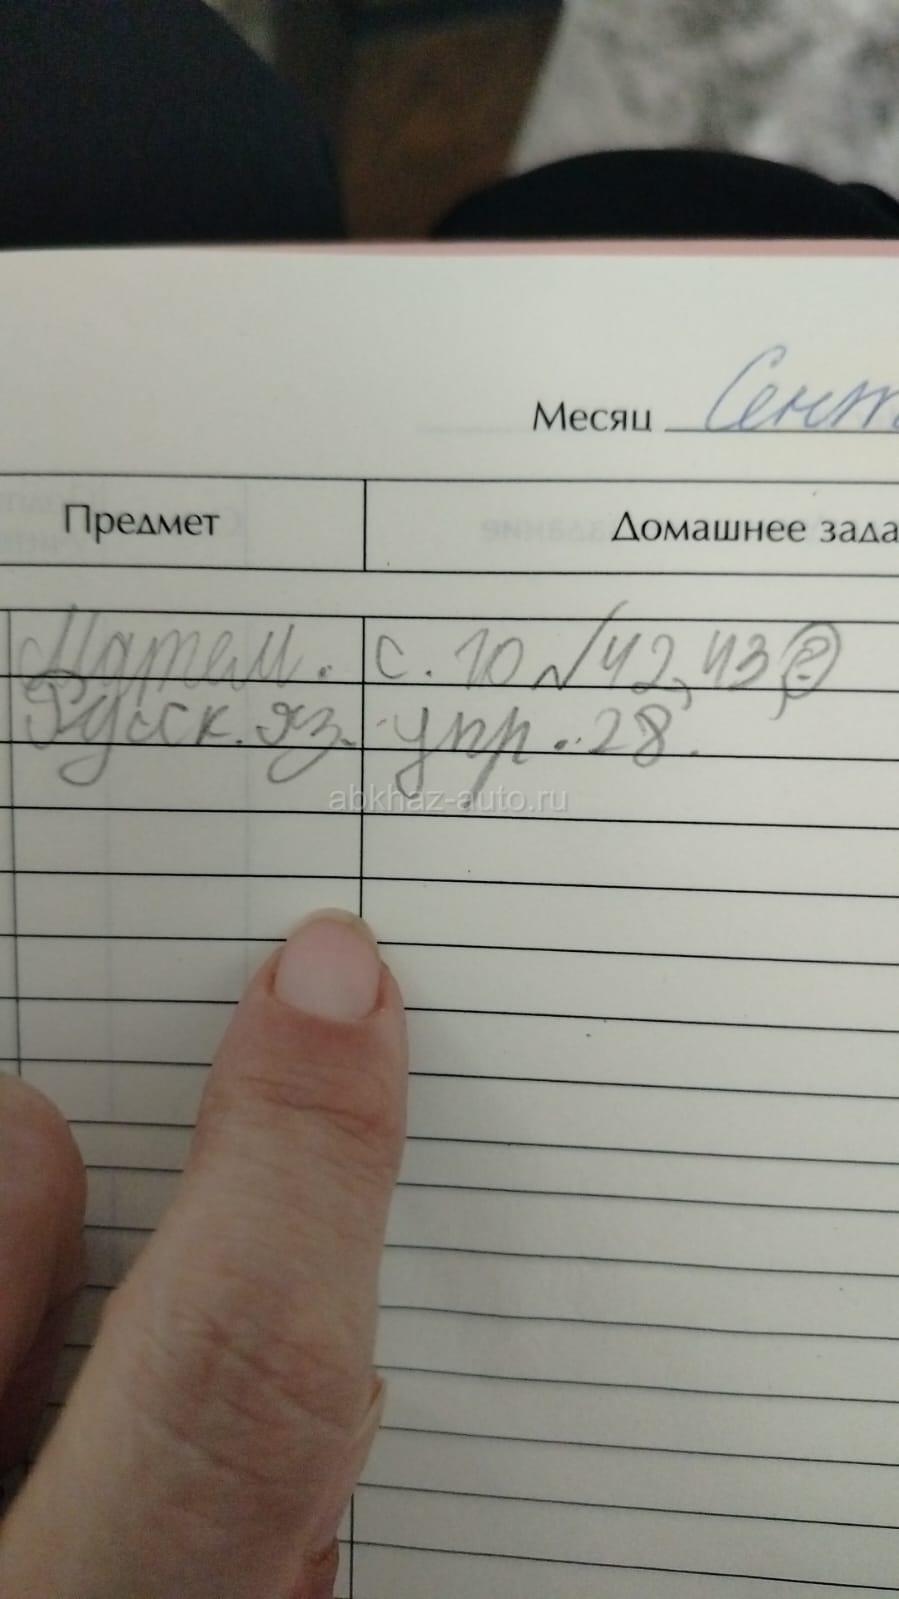 Месяц Сент
Предмет Домашнее зада
Матем. с. 10 №42, 43 (2)
Русск. яз. упр. 28.
abkhaz-auto.ru